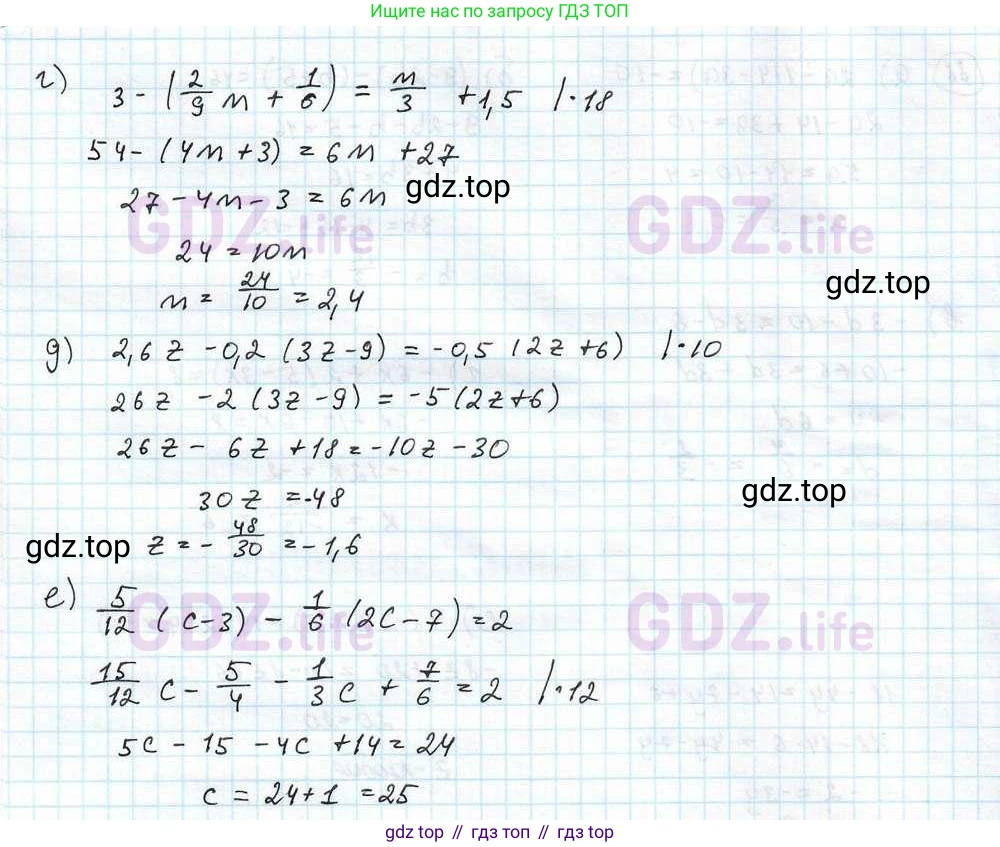 Ищите нас по запросу ГДЗ ТОП
г) 3 - (2/9 м + 1/6) = м/3 + 1,5 |·18
54 - (4м + 3) = 6м + 27
27 - 4м - 3 = 6м
gdz.top
GDZ.life GDZ.life
24 = 10м
gdz.top
м = 24/10 = 2,4
д) 2,6z - 0,2 (3z - 9) = -0,5 (2z + 6) |·10
26z - 2 (3z - 9) = -5 (2z + 6)
26z - 6z + 18 = -10z - 30
30z = -48
gdz.top
gdz.top z = - 48/30 = -1,6
е) 5/12 (c - 3) - 1/6 (2c - 7) = 2
GDZ.life GDZ.life
15/12 c - 5/4 - 1/3 c + 7/6 = 2 |·12
5c - 15 - 4c + 14 = 24
c = 24 + 1 = 25
gdz.top // гдз топ // gdz.top